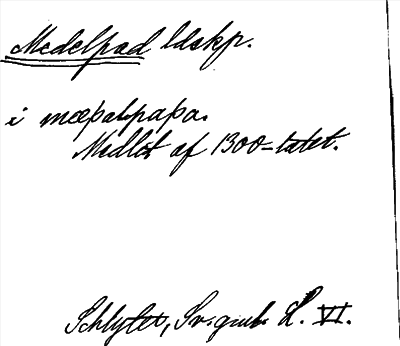 Medelpad ldskp.
i mæþalpaþa.
Midlöt af 1300-talet.
Schlyter, Sv. gml. L. VI.